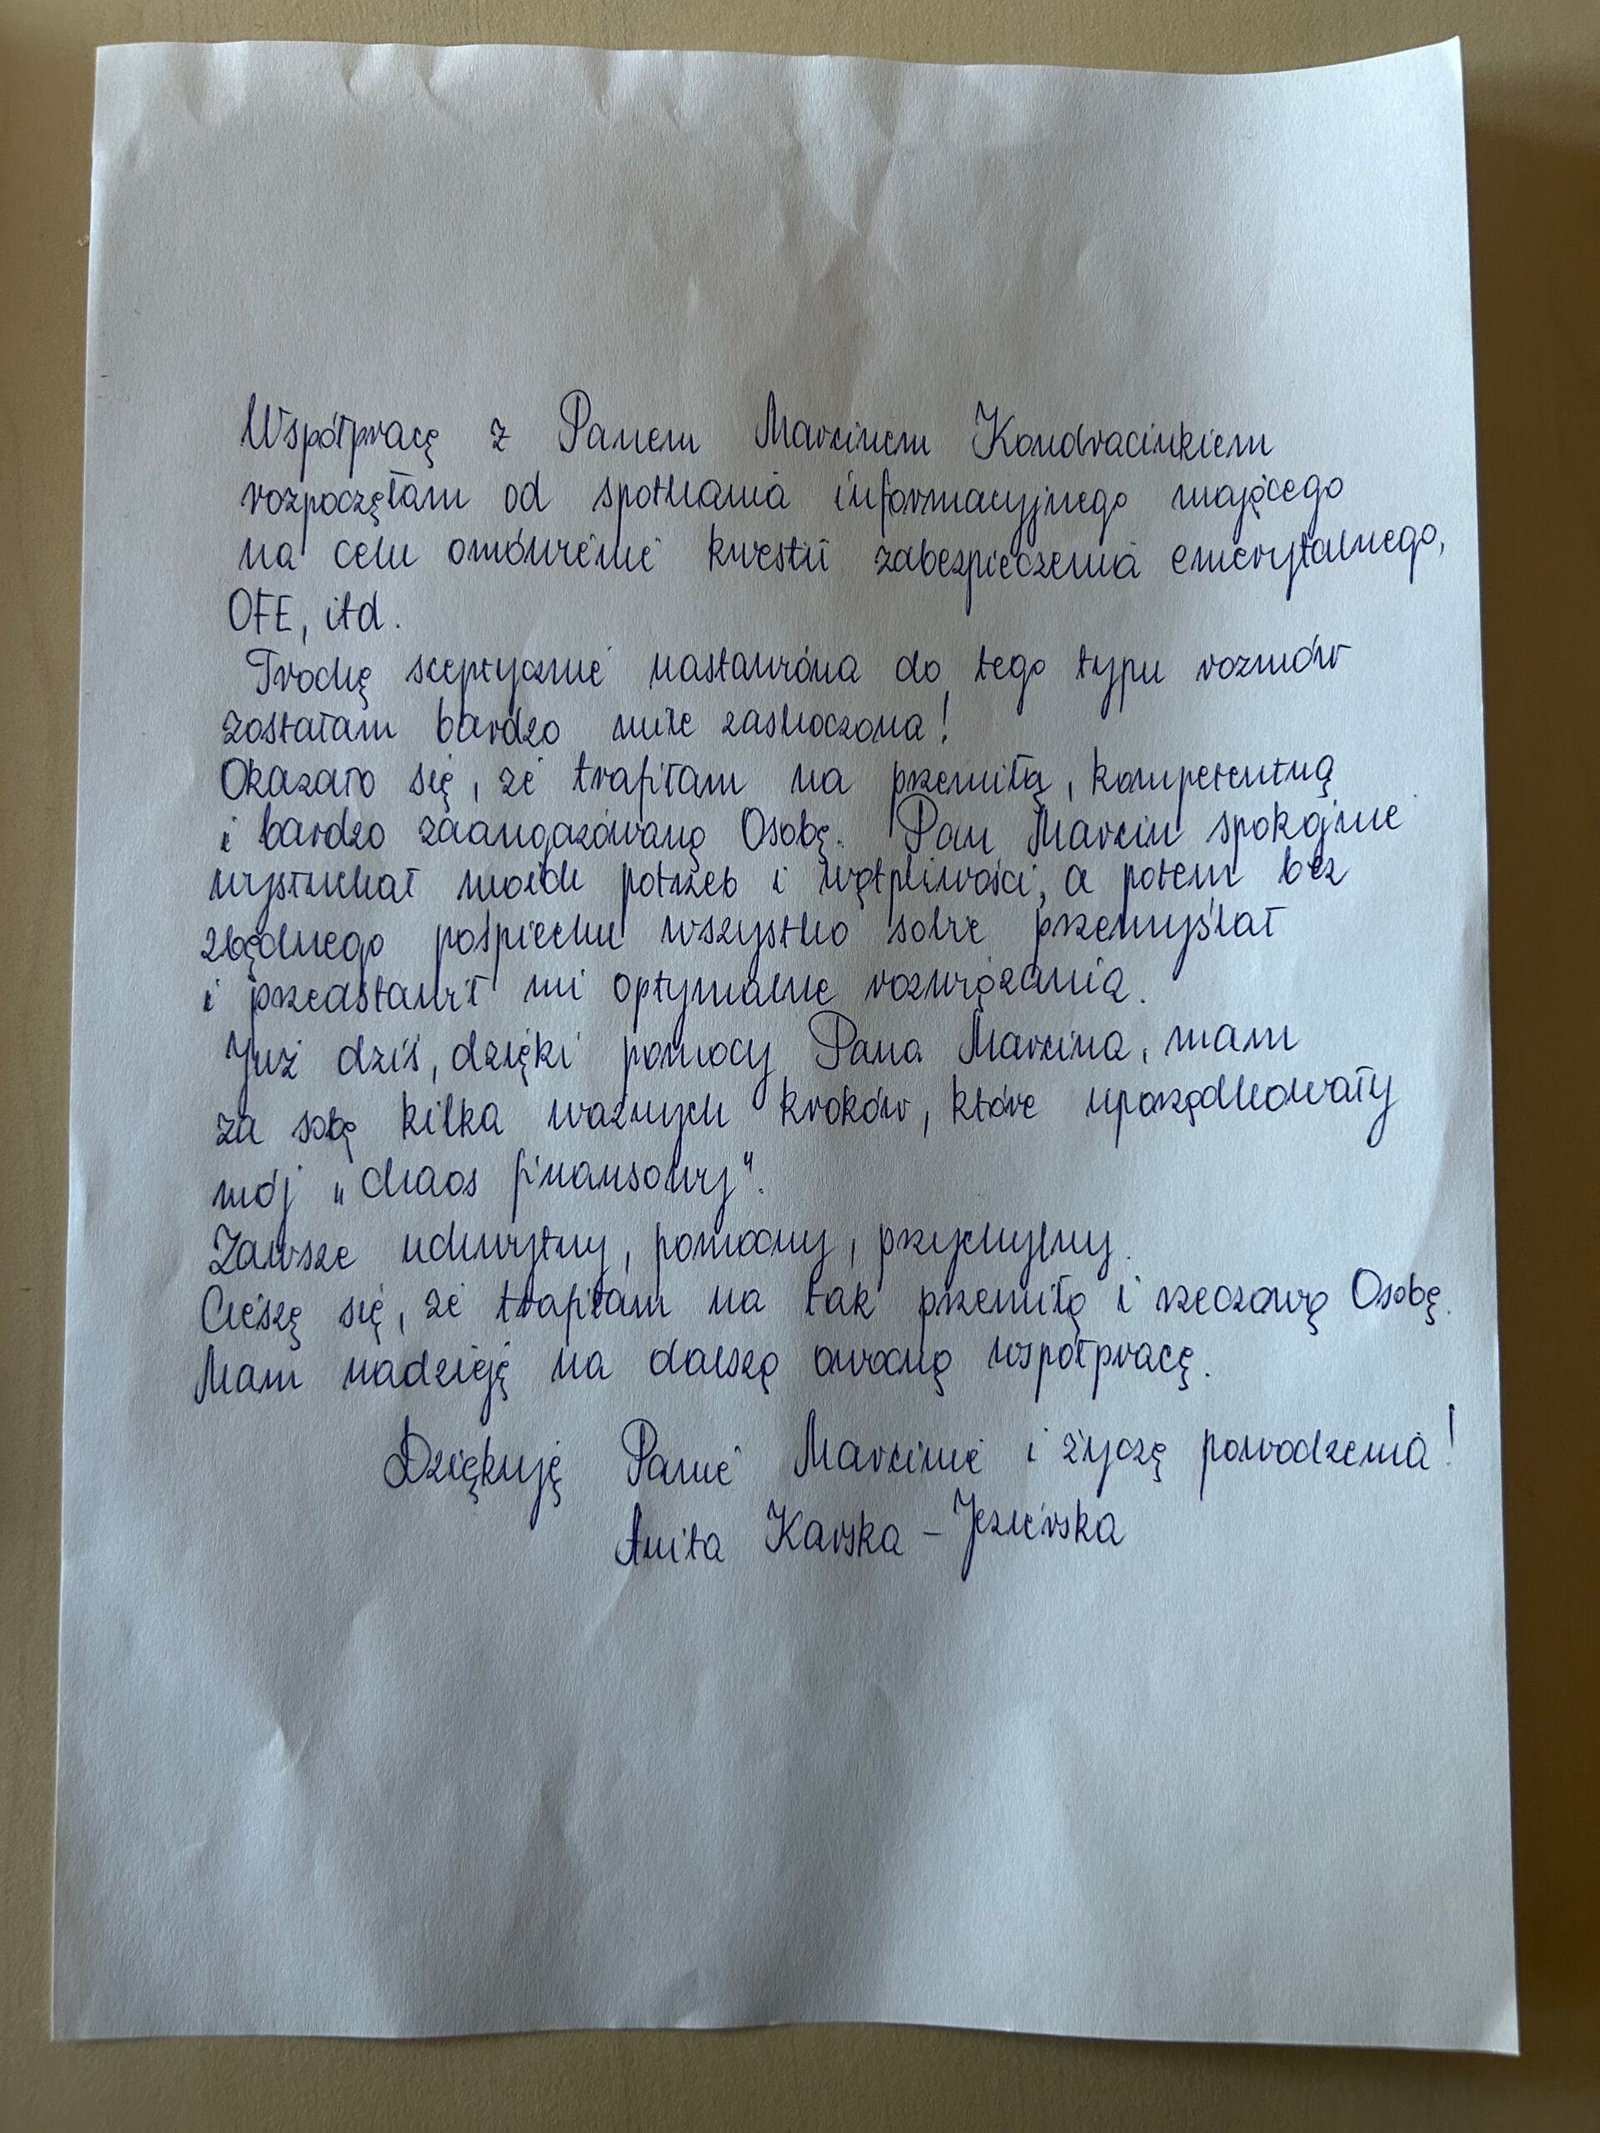 Współpracę z Panem Marcinem Kondracinkiem
rozpoczęłam od spotkania informacyjnego mającego
na celu omówienie kwestii zabezpieczenia emerytalnego,
OFE, itd.
Trochę sceptycznie nastawiona do tego typu rozmów
zostałam bardzo mile zaskoczona!
Okazało się, że trafiłam na przemiłą, kompetentną
i bardzo zaangażowaną Osobę. Pan Marcin spokojnie
wysłuchał moich potrzeb i wątpliwości, a potem bez
zbędnego pośpiechu wszystko sobie przemyślał
i przedstawił mi optymalne rozwiązania.
Już dziś, dzięki pomocy Pana Marcina, mam
za sobą kilka ważnych kroków, które uporządkowały
mój „chaos finansowy".
Zawsze uchwytny, pomocny, przychylny.
Cieszę się, że trafiłam na tak przemiłą i rzeczową Osobę.
Mam nadzieję na dalszą owocną współpracę.
Dziękuję Panie Marcinie i życzę powodzenia!
Anita Karska - Jezierska